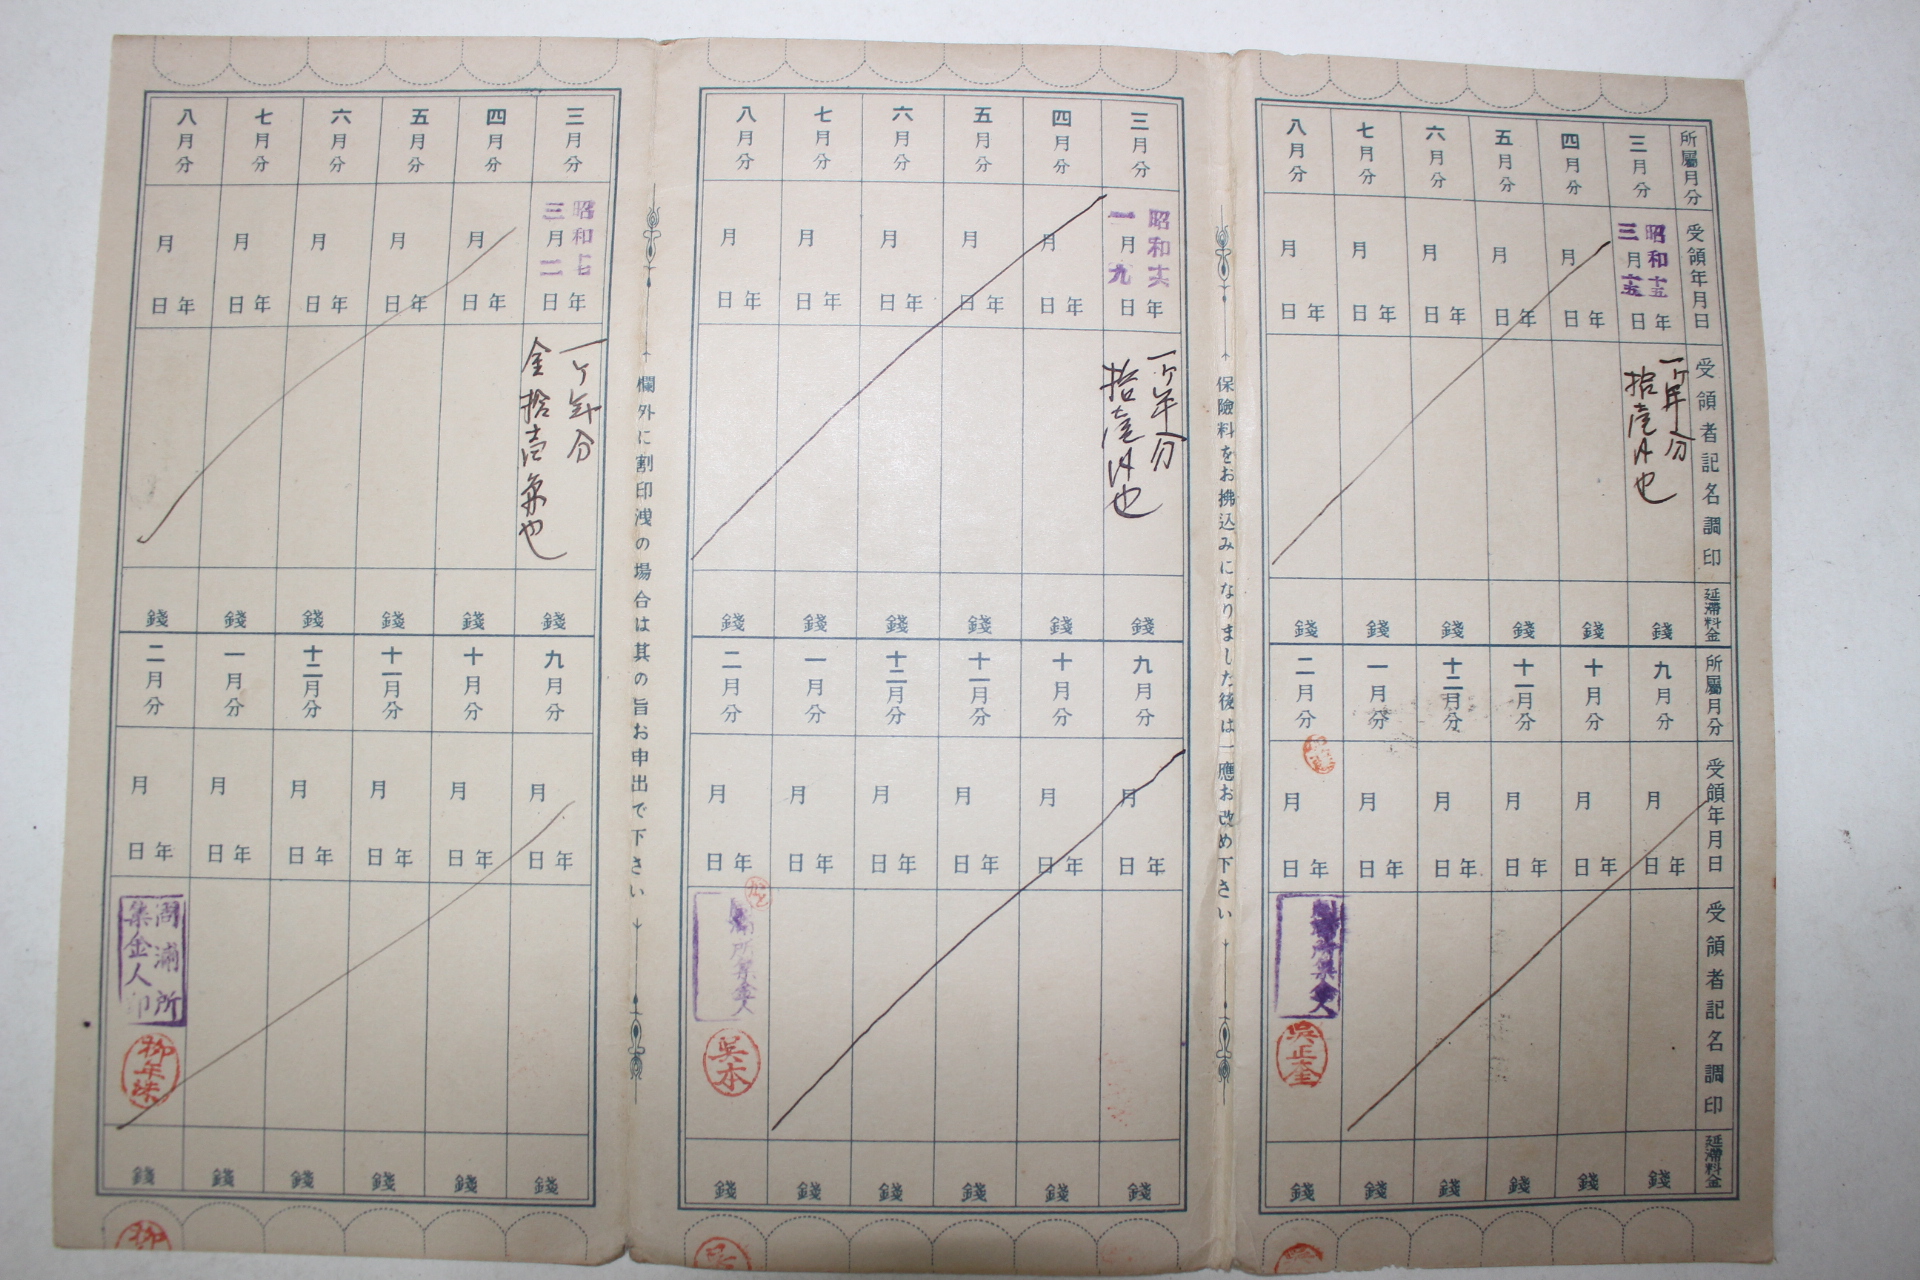 所屬月分
受領年月日
受領者記名調印
延滯料金
所屬月分
受領年月日
受領者記名調印
延滯料金
三月分
昭和十五年
三月 日
一ヶ年分
拾壱円也
錢
四月分
年
月 日
錢
五月分
年
月 日
錢
六月分
年
月 日
錢
七月分
年
月 日
錢
八月分
年
月 日
錢
九月分
年
月 日
錢
十月分
年
月 日
錢
十一月分
年
月 日
錢
十二月分
年
月 日
錢
一月分
年
月 日
錢
二月分
年
月 日
所集金人
呉正奎
錢
保險料をお拂込みになりました後は一應お改め下さい
三月分
昭和十六年
一月九日
一ヶ年分
拾壱円也
錢
四月分
年
月 日
錢
五月分
年
月 日
錢
六月分
年
月 日
錢
七月分
年
月 日
錢
八月分
年
月 日
錢
九月分
年
月 日
錢
十月分
年
月 日
錢
十一月分
年
月 日
錢
十二月分
年
月 日
錢
一月分
年
月 日
錢
二月分
年
月 日
所集金人
呉本
錢
欄外に割印洩の場合は其の旨お申出で下さい
三月分
昭和十七年
三月二日
一ヶ年分
金拾壱円也
錢
四月分
年
月 日
錢
五月分
年
月 日
錢
六月分
年
月 日
錢
七月分
年
月 日
錢
八月分
年
月 日
錢
九月分
年
月 日
錢
十月分
年
月 日
錢
十一月分
年
月 日
錢
十二月分
年
月 日
錢
一月分
年
月 日
錢
二月分
年
月 日
周浦所
集金人印
錢